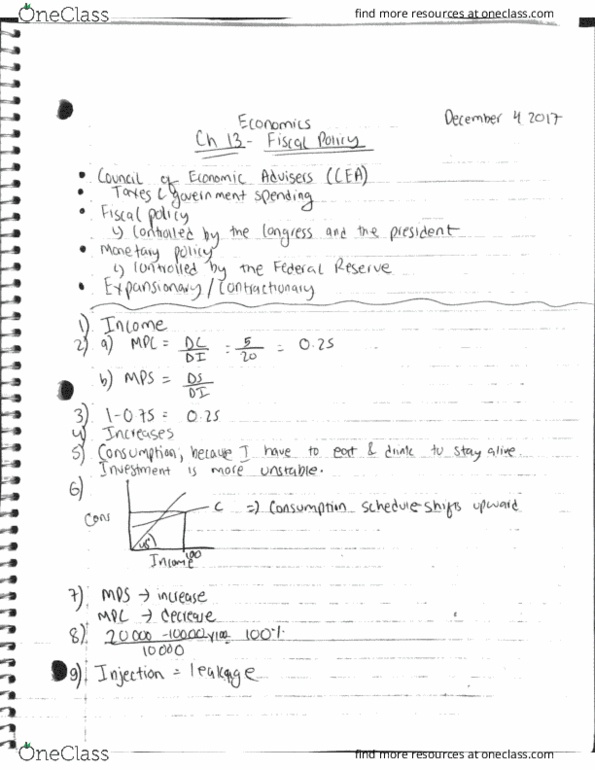 OneClass
find more resources at oneclass.com
Economics
December 4 2017
Ch 13 - Fiscal Policy
• Council of Economic Advisers (CEA)
• Taxes & government spending
• Fiscal policy
↳ controlled by the Congress and the president
• Monetary policy
↳ controlled by the Federal Reserve
• Expansionary / Contractionary
1) Income
2) a) MPC = DC/DI = 5/20 = 0.25
b) MPS = DS/DI
3) 1-0.75 = 0.25
4) Increases
5) Consumption, because I have to eat & drink to stay alive.
Investment is more unstable.
6)
C => Consumption schedule shifts upward
Cons
45°
100
Income
7) MPS → increase
MPC → decrease
8) 20000 - 10000 x 100 = 100%
10000
9) Injection = leakage
OneClass
find more resources at oneclass.com